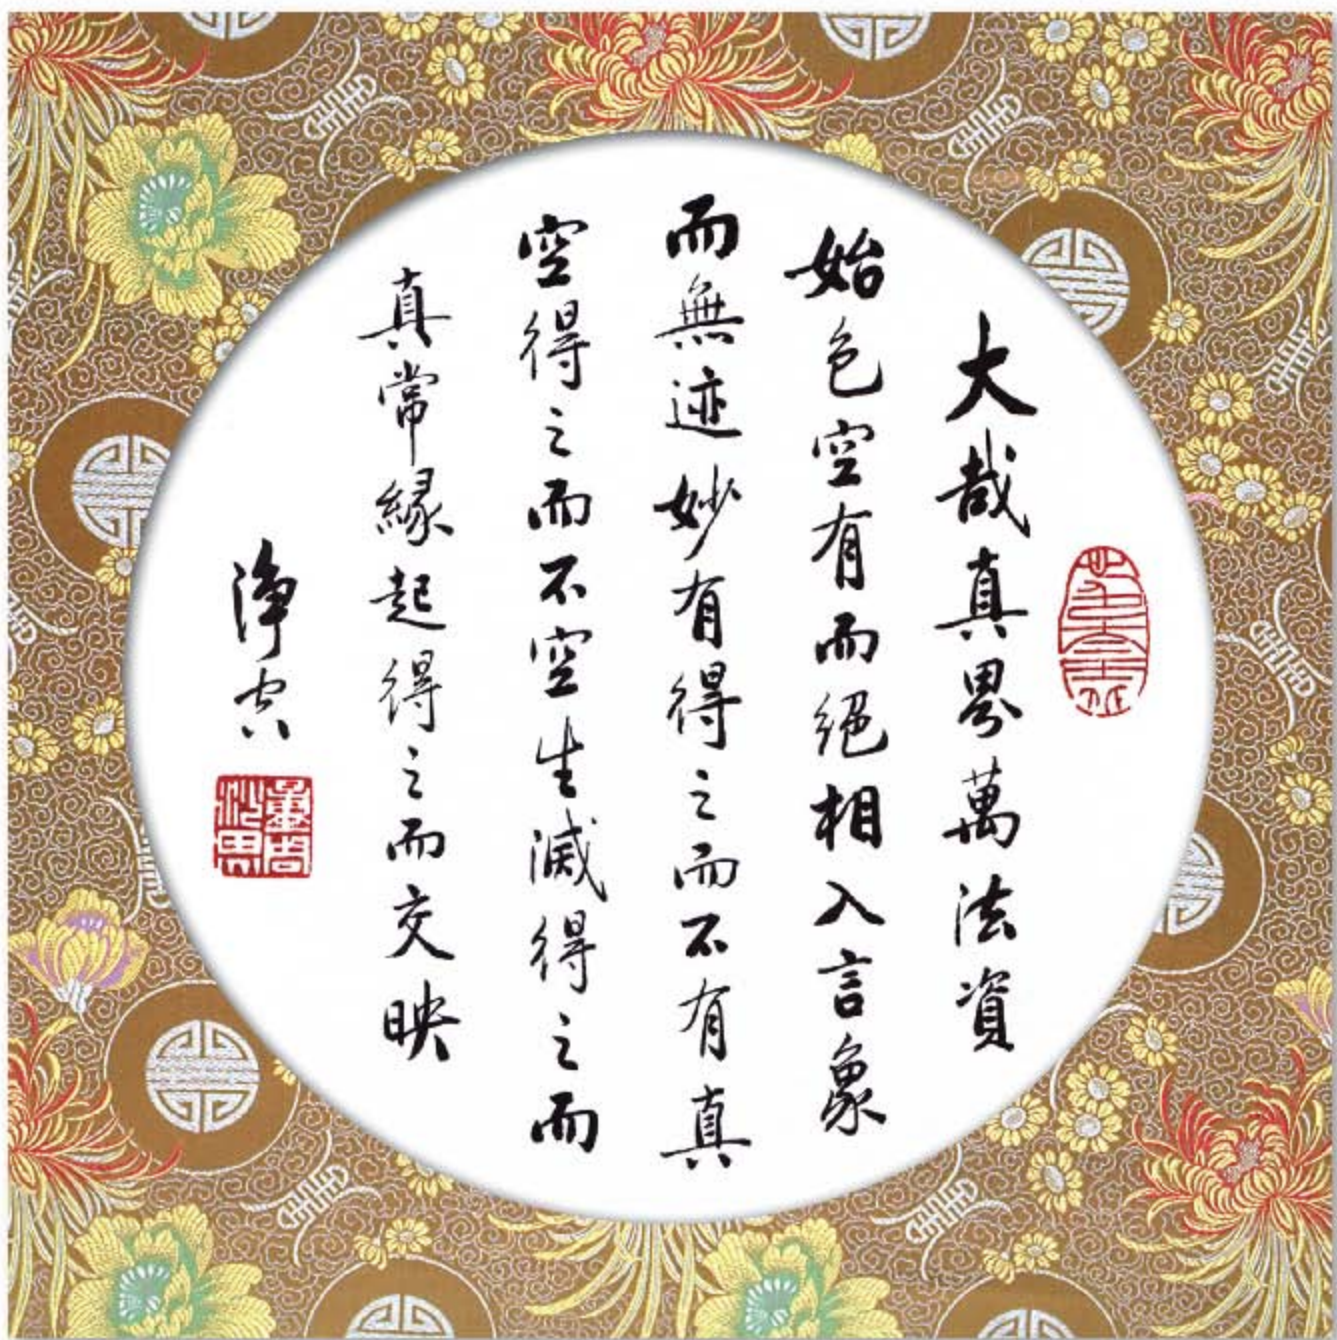 大哉真界萬法資
始色空有而絕相入言象
而無迹妙有得之而不有真
空得之而不空生滅得之而
真常緣起得之而交映
淨